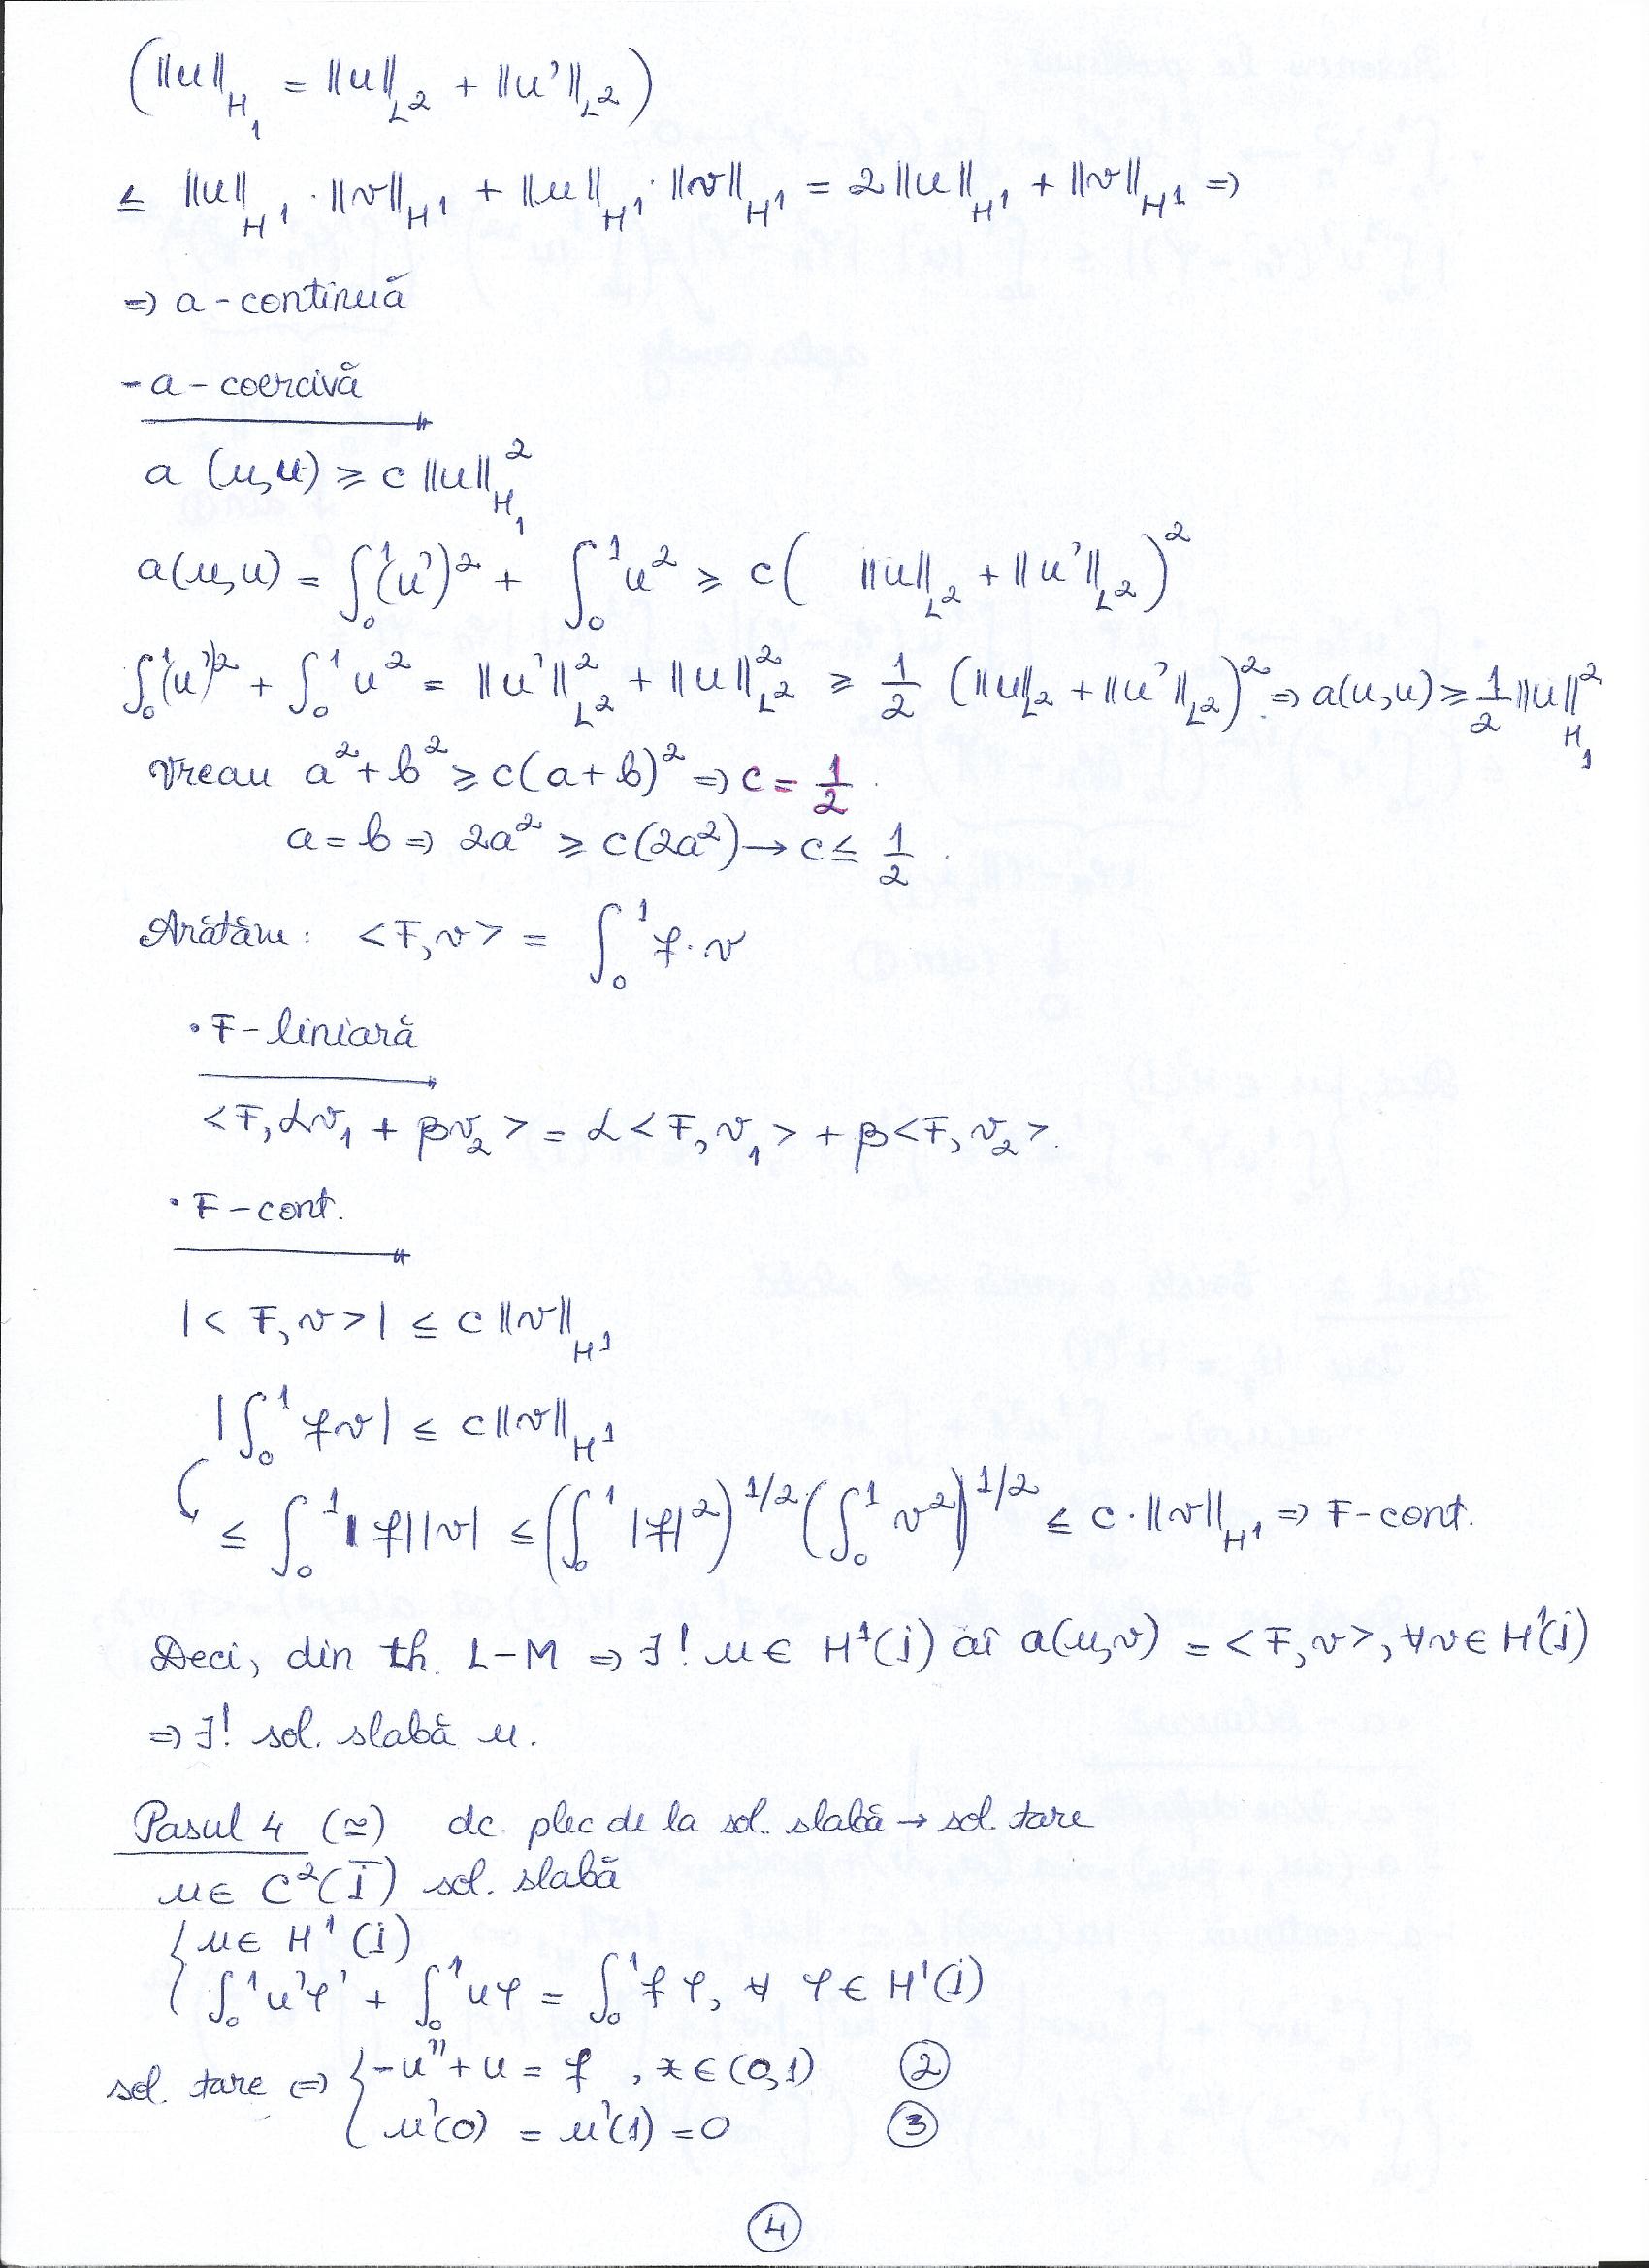 (||u||_{H_1} = ||u||_{L^2} + ||u'||_{L^2})
≤ ||u||_{H^1} · ||v||_{H^1} + ||u||_{H^1} · ||v||_{H^1} = 2||u||_{H^1} + ||v||_{H^1} ⇒
⇒ a - continuă
- a - coercivă
a (u,u) ≥ c ||u||^2_{H_1}
a(u,u) = ∫_0^1 (u')^2 + ∫_0^1 u^2 ≥ c( ||u||_{L^2} + ||u'||_{L^2})^2
∫_0^1 (u')^2 + ∫_0^1 u^2 = ||u'||^2_{L^2} + ||u||^2_{L^2} ≥ 1/2 (||u||_{L^2} + ||u'||_{L^2})^2 ⇒ a(u,u) ≥ 1/2 ||u||^2_{H_1}
Vreau a^2 + b^2 ≥ c(a+b)^2 ⇒ c = 1/2
a = b ⇒ 2a^2 ≥ c(2a^2) → c ≤ 1/2.
Arătăm: <F,v> = ∫_0^1 f·v
• F - liniară
<F, αv_1 + βv_2> = α<F,v_1> + β<F,v_2>.
• F - cont.
|<F,v>| ≤ c||v||_{H^1}
|∫_0^1 fv| ≤ c||v||_{H^1}
≤ ∫_0^1 |f||v| ≤ (∫_0^1 |f|^2)^{1/2} (∫_0^1 v^2)^{1/2} ≤ c·||v||_{H^1} ⇒ F-cont.
Deci, din th. L-M ⇒ ∃! u ∈ H^1(I) aî a(u,v) = <F,v>, ∀v ∈ H^1(I)
⇒ ∃! sol. slabă u.
Pasul 4 (≃) dc. plec de la sol. slabă → sol. tare
u ∈ C^2(Ī) sol. slabă
{ u ∈ H^1(I)
∫_0^1 u'φ' + ∫_0^1 uφ = ∫_0^1 fφ, ∀ φ ∈ H^1(I)
sol. tare ⇔ { -u'' + u = f , x ∈ (0,1) ②
u'(0) = u'(1) = 0 ③
④